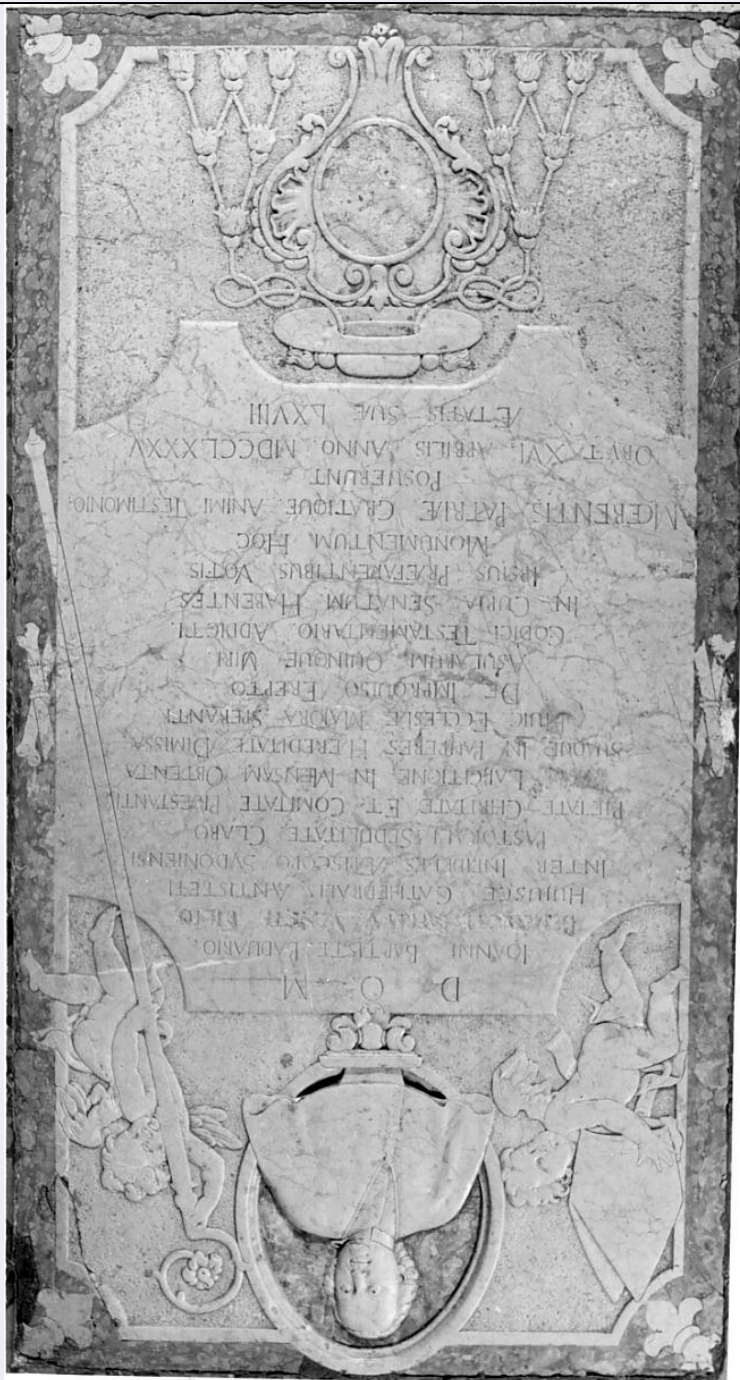 D O M
IOANNI BAPTISTÆ LADVARIO.
FILIO
HUIUSCE CATHEDRALI ANTISTETI
INTER INFIDELES ÆPISCOPO SYDONIENSI
PASTORALI SEDULITATE CLARO
PIETATE CHRITATE ET COMITATE PRÆSTANTI
LARGITIONE IN MENSAM OBTENTA
SUAQUE IN PAUPERES HÆREDITATE DIMISSA
HUIC ECCLESIÆ MAJORA SPERANTI
DE IMPROUISO EREPTO
QUINQUE VIRI
CODICI TESTAMENTARIO ADDICTI
IN CURIA SENATUM HABENTES
IPSIUS PRÆFARENTIBUS VOTIS
MONUMENTUM HOC
MŒRENTIS PATRIÆ GRATIQUE ANIMI TESTIMONIO
POSUERUNT
OBYT XVI APRILIS ANNO MDCCLXXXV
ÆTATIS SUÆ LXVIII